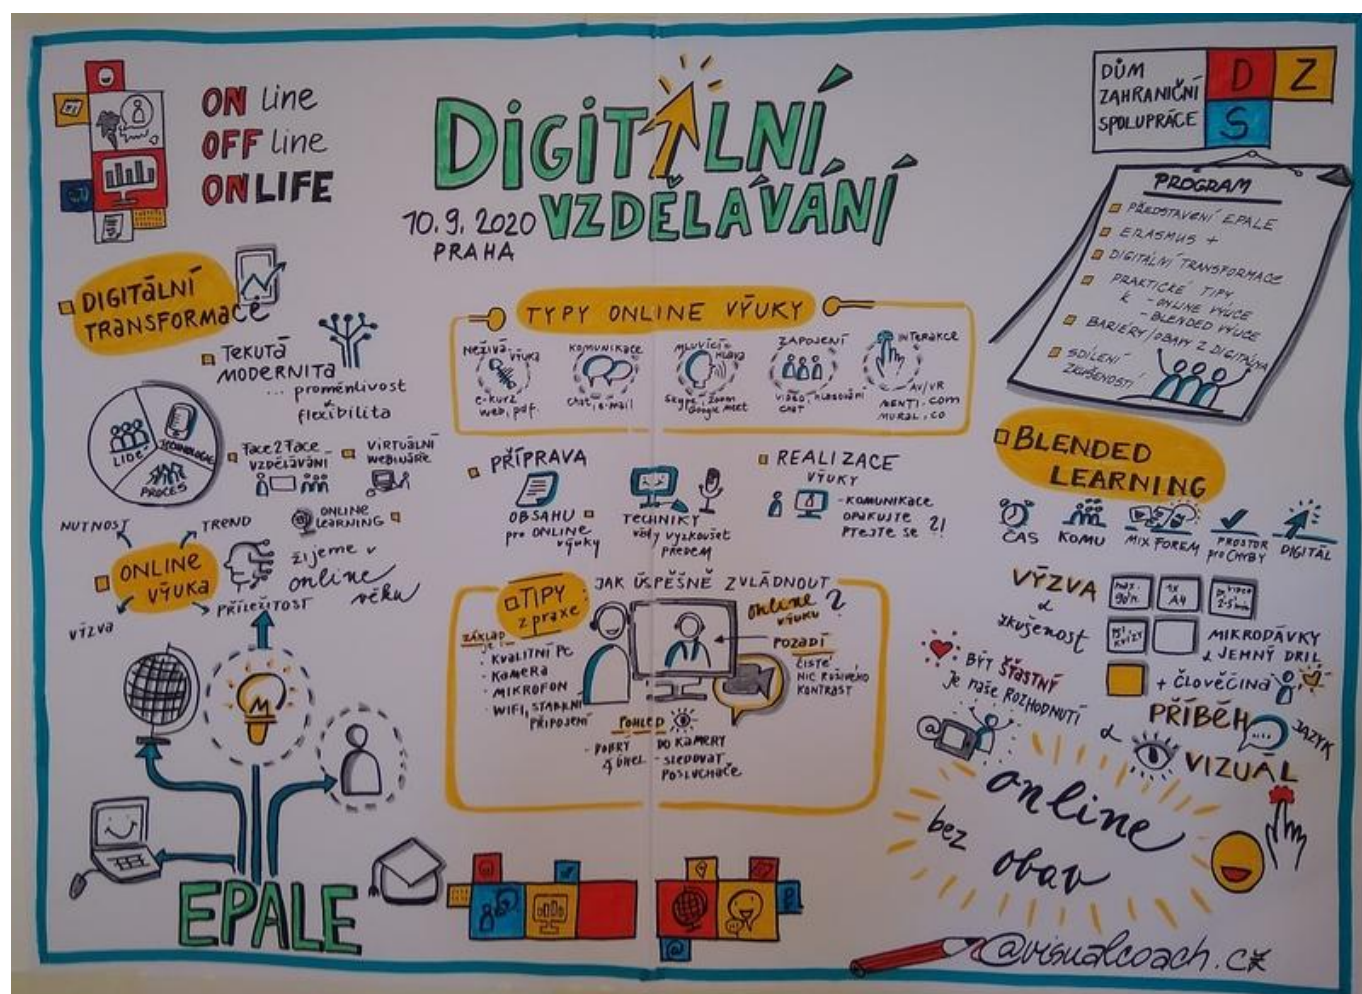 ON line
OFF line
ON LIFE
DIGITÁLNÍ
VZDĚLÁVÁNÍ
10.9.2020
PRAHA
DŮM
ZAHRANIČNÍ
SPOLUPRÁCE
D Z
S
PROGRAM
PŘEDSTAVENÍ EPALE
ERASMUS +
DIGITÁLNÍ TRANSFORMACE
PRAKTICKÉ TIPY
K - ONLINE VÝUCE
- BLENDED VÝUCE
BARIÉRY/OBAVY Z DIGITÁLNA
SDÍLENÍ
ZKUŠENOSTÍ
DIGITÁLNÍ
TRANSFORMACE
TEKUTÁ
MODERNITA
... proměnlivost
&
flexibilita
LIDÉ
TECHNOLOGIE
PROCES
Face2Face
VZDĚLÁVÁNÍ
VIRTUÁLNÍ
WEBINÁŘE
@ ONLINE
LEARNING
NUTNOST
TREND
ONLINE
VÝUKA
VÝZVA
PŘÍLEŽITOST
žijeme v
online
věku
EPALE
TYPY ONLINE VÝUKY
NEŽIVÁ
VÝUKA
e-kurz
web, pdf.
KOMUNIKACE
chat, e-mail
MLUVÍCÍ
HLAVA
Skype, Zoom
Google Meet
ZAPOJENÍ
VIDEO, HLASOVÁNÍ
CHAT
INTERAKCE
AV/VR
MENTI.com
MURAL.CO
PŘÍPRAVA
OBSAHU
pro ONLINE
výuky
TECHNIKY
vždy vyzkoušet
PŘEDEM
REALIZACE
VÝUKY
- KOMUNIKACE
OPAKUJTE
PTEJTE SE ?!
TIPY
z praxe
JAK ÚSPĚŠNĚ ZVLÁDNOUT
online
výuku ?
ZÁKLAD
je!
• KVALITNÍ PC
• KAMERA
• MIKROFON
• WIFI, STABILNÍ
PŘIPOJENÍ
POZADÍ
ČISTÉ
NIC RUŠIVÉHO
KONTRAST
POHLED
- DOBRÝ
ÚHEL
DO KAMERY
- SLEDOVAT
POSLUCHAČE
BLENDED
LEARNING
ČAS
KOMU
MIX FOREM
PROSTOR
pro CHYBY
DIGITÁL
VÝZVA
&
zkušenost
max.
90m.
1x
A4
VIDEO
2-5 min
KVÍZY
MIKRODÁVKY
& JEMNÝ DRIL
+ ČLOVĚČINA
BÝT ŠŤASTNÝ
je naše ROZHODNUTÍ
PŘÍBĚH
JAZYK
&
VIZUÁL
@
online
bez
obav
@
@visualcoach.cz